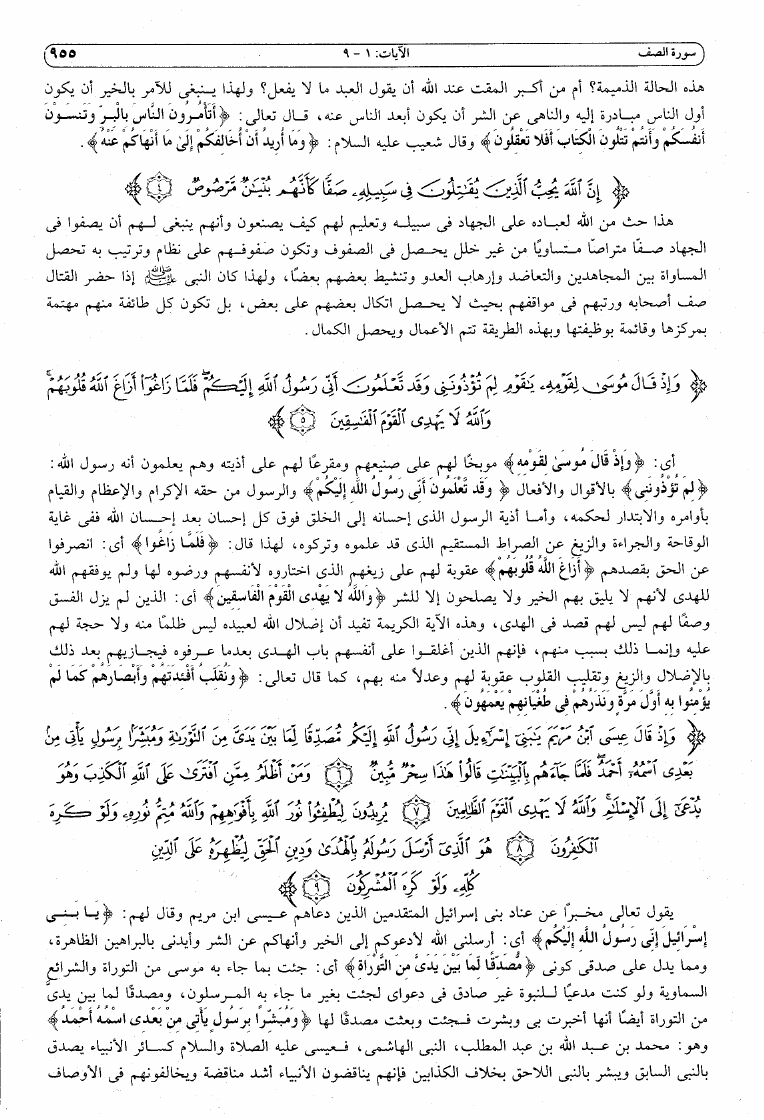 سورة الصف الآيات: ١ - ٩ ٩٥٥
هذه الحالة الذميمة؟ أم من أكبر المقت عند الله أن يقول العبد ما لا يفعل؟ ولهذا ينبغي للآمر بالخير أن يكون
أول الناس مبادرة إليه والناهى عن الشر أن يكون أبعد الناس عنه، قال تعالى: ﴿أَتَأْمُرُونَ النَّاسَ بِالْبِرِّ وَتَنسَوْنَ
أَنفُسَكُمْ وَأَنتُمْ تَتْلُونَ الْكِتَابَ أَفَلا تَعْقِلُونَ﴾ وقال شعيب عليه السلام: ﴿وَمَا أُرِيدُ أَنْ أُخَالِفَكُمْ إِلَىٰ مَا أَنْهَاكُمْ عَنْهُ﴾.
﴿إِنَّ اللَّهَ يُحِبُّ الَّذِينَ يُقَاتِلُونَ فِي سَبِيلِهِ صَفًّا كَأَنَّهُم بُنْيَانٌ مَّرْصُوصٌ ٤﴾
هذا حث من الله لعباده على الجهاد فى سبيله وتعليم لهم كيف يصنعون وأنهم ينبغى لهم أن يصفوا فى
الجهاد صفًا متراصًا متساويًا من غير خلل يحصل فى الصفوف وتكون صفوفهم على نظام وترتيب به تحصل
المساواة بين المجاهدين والتعاضد وإرهاب العدو وتنشيط بعضهم بعضًا، ولهذا كان النبى ﷺ إذا حضر القتال
صف أصحابه ورتبهم فى مواقفهم بحيث لا يحصل اتكال بعضهم على بعض، بل تكون كل طائفة منهم مهتمة
بمركزها وقائمة بوظيفتها وبهذه الطريقة تتم الأعمال ويحصل الكمال.
﴿وَإِذْ قَالَ مُوسَىٰ لِقَوْمِهِ يَا قَوْمِ لِمَ تُؤْذُونَنِي وَقَد تَّعْلَمُونَ أَنِّي رَسُولُ اللَّهِ إِلَيْكُمْ ۖ فَلَمَّا زَاغُوا أَزَاغَ اللَّهُ قُلُوبَهُمْ ۚ
وَاللَّهُ لَا يَهْدِي الْقَوْمَ الْفَاسِقِينَ ٥﴾
أى: ﴿وَإِذْ قَالَ مُوسَىٰ لِقَوْمِهِ﴾ موبخًا لهم على صنيعهم ومقرعًا لهم على أذيته وهم يعلمون أنه رسول الله:
﴿لِمَ تُؤْذُونَنِي﴾ بالأقوال والأفعال ﴿وَقَد تَّعْلَمُونَ أَنِّي رَسُولُ اللَّهِ إِلَيْكُمْ﴾ والرسول من حقه الإكرام والإعظام والقيام
بأوامره والابتدار لحكمه، وأما أذية الرسول الذى إحسانه إلى الخلق فوق كل إحسان بعد إحسان الله ففى غاية
الوقاحة والجراءة والزيغ عن الصراط المستقيم الذى قد علموه وتركوه، لهذا قال: ﴿فَلَمَّا زَاغُوا﴾ أى: انصرفوا
عن الحق بقصدهم ﴿أَزَاغَ اللَّهُ قُلُوبَهُمْ﴾ عقوبة لهم على زيغهم الذى اختاروه لأنفسهم ورضوه لها ولم يوفقهم الله
للهدى لأنهم لا يليق بهم الخير ولا يصلحون إلا للشر ﴿وَاللَّهُ لا يَهْدِي الْقَوْمَ الْفَاسِقِينَ﴾ أى: الذين لم يزل الفسق
وصفًا لهم ليس لهم قصد فى الهدى، وهذه الآية الكريمة تفيد أن إضلال الله لعبيده ليس ظلمًا منه ولا حجة لهم
عليه وإنما ذلك بسبب منهم، فإنهم الذين أغلقوا على أنفسهم باب الهدى بعدما عرفوه فيجازيهم بعد ذلك
بالإضلال والزيغ وتقليب القلوب عقوبة لهم وعدلاً منه بهم، كما قال تعالى: ﴿وَنُقَلِّبُ أَفْئِدَتَهُمْ وَأَبْصَارَهُمْ كَمَا لَمْ
يُؤْمِنُوا بِهِ أَوَّلَ مَرَّةٍ وَنَذَرُهُمْ فِي طُغْيَانِهِمْ يَعْمَهُونَ﴾.
﴿وَإِذْ قَالَ عِيسَى ابْنُ مَرْيَمَ يَا بَنِي إِسْرَائِيلَ إِنِّي رَسُولُ اللَّهِ إِلَيْكُم مُّصَدِّقًا لِّمَا بَيْنَ يَدَيَّ مِنَ التَّوْرَاةِ وَمُبَشِّرًا بِرَسُولٍ يَأْتِي مِن
بَعْدِي اسْمُهُ أَحْمَدُ ۖ فَلَمَّا جَاءَهُم بِالْبَيِّنَاتِ قَالُوا هَٰذَا سِحْرٌ مُّبِينٌ ٦ وَمَنْ أَظْلَمُ مِمَّنِ افْتَرَىٰ عَلَى اللَّهِ الْكَذِبَ وَهُوَ
يُدْعَىٰ إِلَى الْإِسْلَامِ ۚ وَاللَّهُ لَا يَهْدِي الْقَوْمَ الظَّالِمِينَ ٧ يُرِيدُونَ لِيُطْفِئُوا نُورَ اللَّهِ بِأَفْوَاهِهِمْ وَاللَّهُ مُتِمُّ نُورِهِ وَلَوْ كَرِهَ
الْكَافِرُونَ ٨ هُوَ الَّذِي أَرْسَلَ رَسُولَهُ بِالْهُدَىٰ وَدِينِ الْحَقِّ لِيُظْهِرَهُ عَلَى الدِّينِ
كُلِّهِ وَلَوْ كَرِهَ الْمُشْرِكُونَ ٩﴾
يقول تعالى مخبرًا عن عناد بنى إسرائيل المتقدمين الذين دعاهم عيسى ابن مريم وقال لهم: ﴿يَا بَنِي
إِسْرَائِيلَ إِنِّي رَسُولُ اللَّهِ إِلَيْكُم﴾ أى: أرسلنى الله لأدعوكم إلى الخير وأنهاكم عن الشر وأيدنى بالبراهين الظاهرة،
ومما يدل على صدقى كونى ﴿مُّصَدِّقًا لِّمَا بَيْنَ يَدَيَّ مِنَ التَّوْرَاةِ﴾ أى: جئت بما جاء به موسى من التوراة والشرائع
السماوية ولو كنت مدعيًا للنبوة غير صادق فى دعواى لجئت بغير ما جاء به المرسلون، ومصدقًا لما بين يدىَّ
من التوراة أيضًا أنها أخبرت بى وبشرت فجئت وبعثت مصدقًا لها ﴿وَمُبَشِّرًا بِرَسُولٍ يَأْتِي مِنْ بَعْدِي اسْمُهُ أَحْمَدُ﴾
وهو: محمد بن عبد الله بن عبد المطلب، النبى الهاشمى، فعيسى عليه الصلاة والسلام كسائر الأنبياء يصدق
بالنبى السابق ويبشر بالنبى اللاحق بخلاف الكذابين فإنهم يناقضون الأنبياء أشد مناقضة ويخالفونهم فى الأوصاف